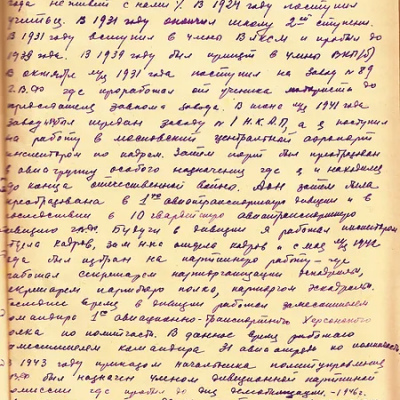 года не живет с нами". В 1924 году поступил
учиться. В 1931 году окончил школу 2ой ступени.
В 1931 году вступил в члены ВЛКСМ и пробыл до
1939 года. В 1939 году был принят в члены ВКП(б)
В октябре м/ц 1931 года поступил на завод №89
Г.В.Ф. где проработал от ученика до
председателя завкома завода. В июне м/ц 1941 года
завод был передан заводу №1 Н.К.А.П. а я поступил
на работу в московский центральный аэропорт
инспектором по кадрам. Затем порт был преобразован
в авиагруппу особого назначения где я и находился
до конца отечественной войны. Аон затем была
преобразована в 1ую авиатранспортную дивизию и в
последствии в 10 гвардейскую авиатранспортную
дивизию. Будучи в дивизии я работал инспектором
отдела кадров, зам нач отдела кадров и с мая м/ц 1942
где был избран на партийную работу - где
работал секретарем парторганизации эскадрильи,
секретарем партбюро полка, парторгом эскадрильи.
последнее время в дивизии работал заместителем
командира 1го авиационно-транспортного Херсонского
полка по политчасти. В данное время работаю
заместителем командира 31 авиаотряда по политчасти.
В 1943 году приказом начальника политуправления
был назначен членом дивизионной партийной
комиссии где пробыл до дня демобилизации, - 1946г.